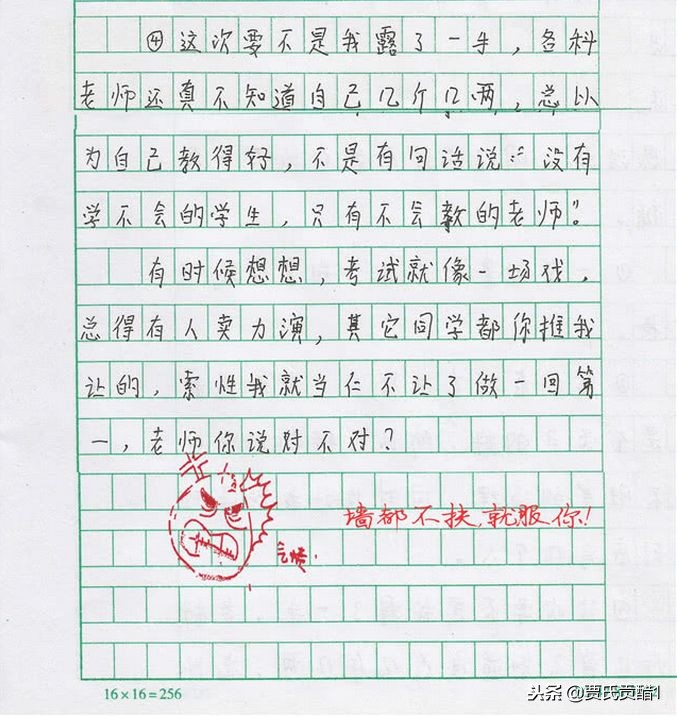 ④这次要不是我露了一手，各科
老师还真不知道自己几个几两，总以
为自己教得好，不是有句话说：没有
学不会的学生，只有不会教的老师？
有时候想想，考试就像一场戏，
总得有人卖力演，其它同学都你推我
让的，索性我就当仁不让了做一回第
一，老师你说对不对？
墙都不扶，就服你！
16×16=256
头条@贾氏贡醋1